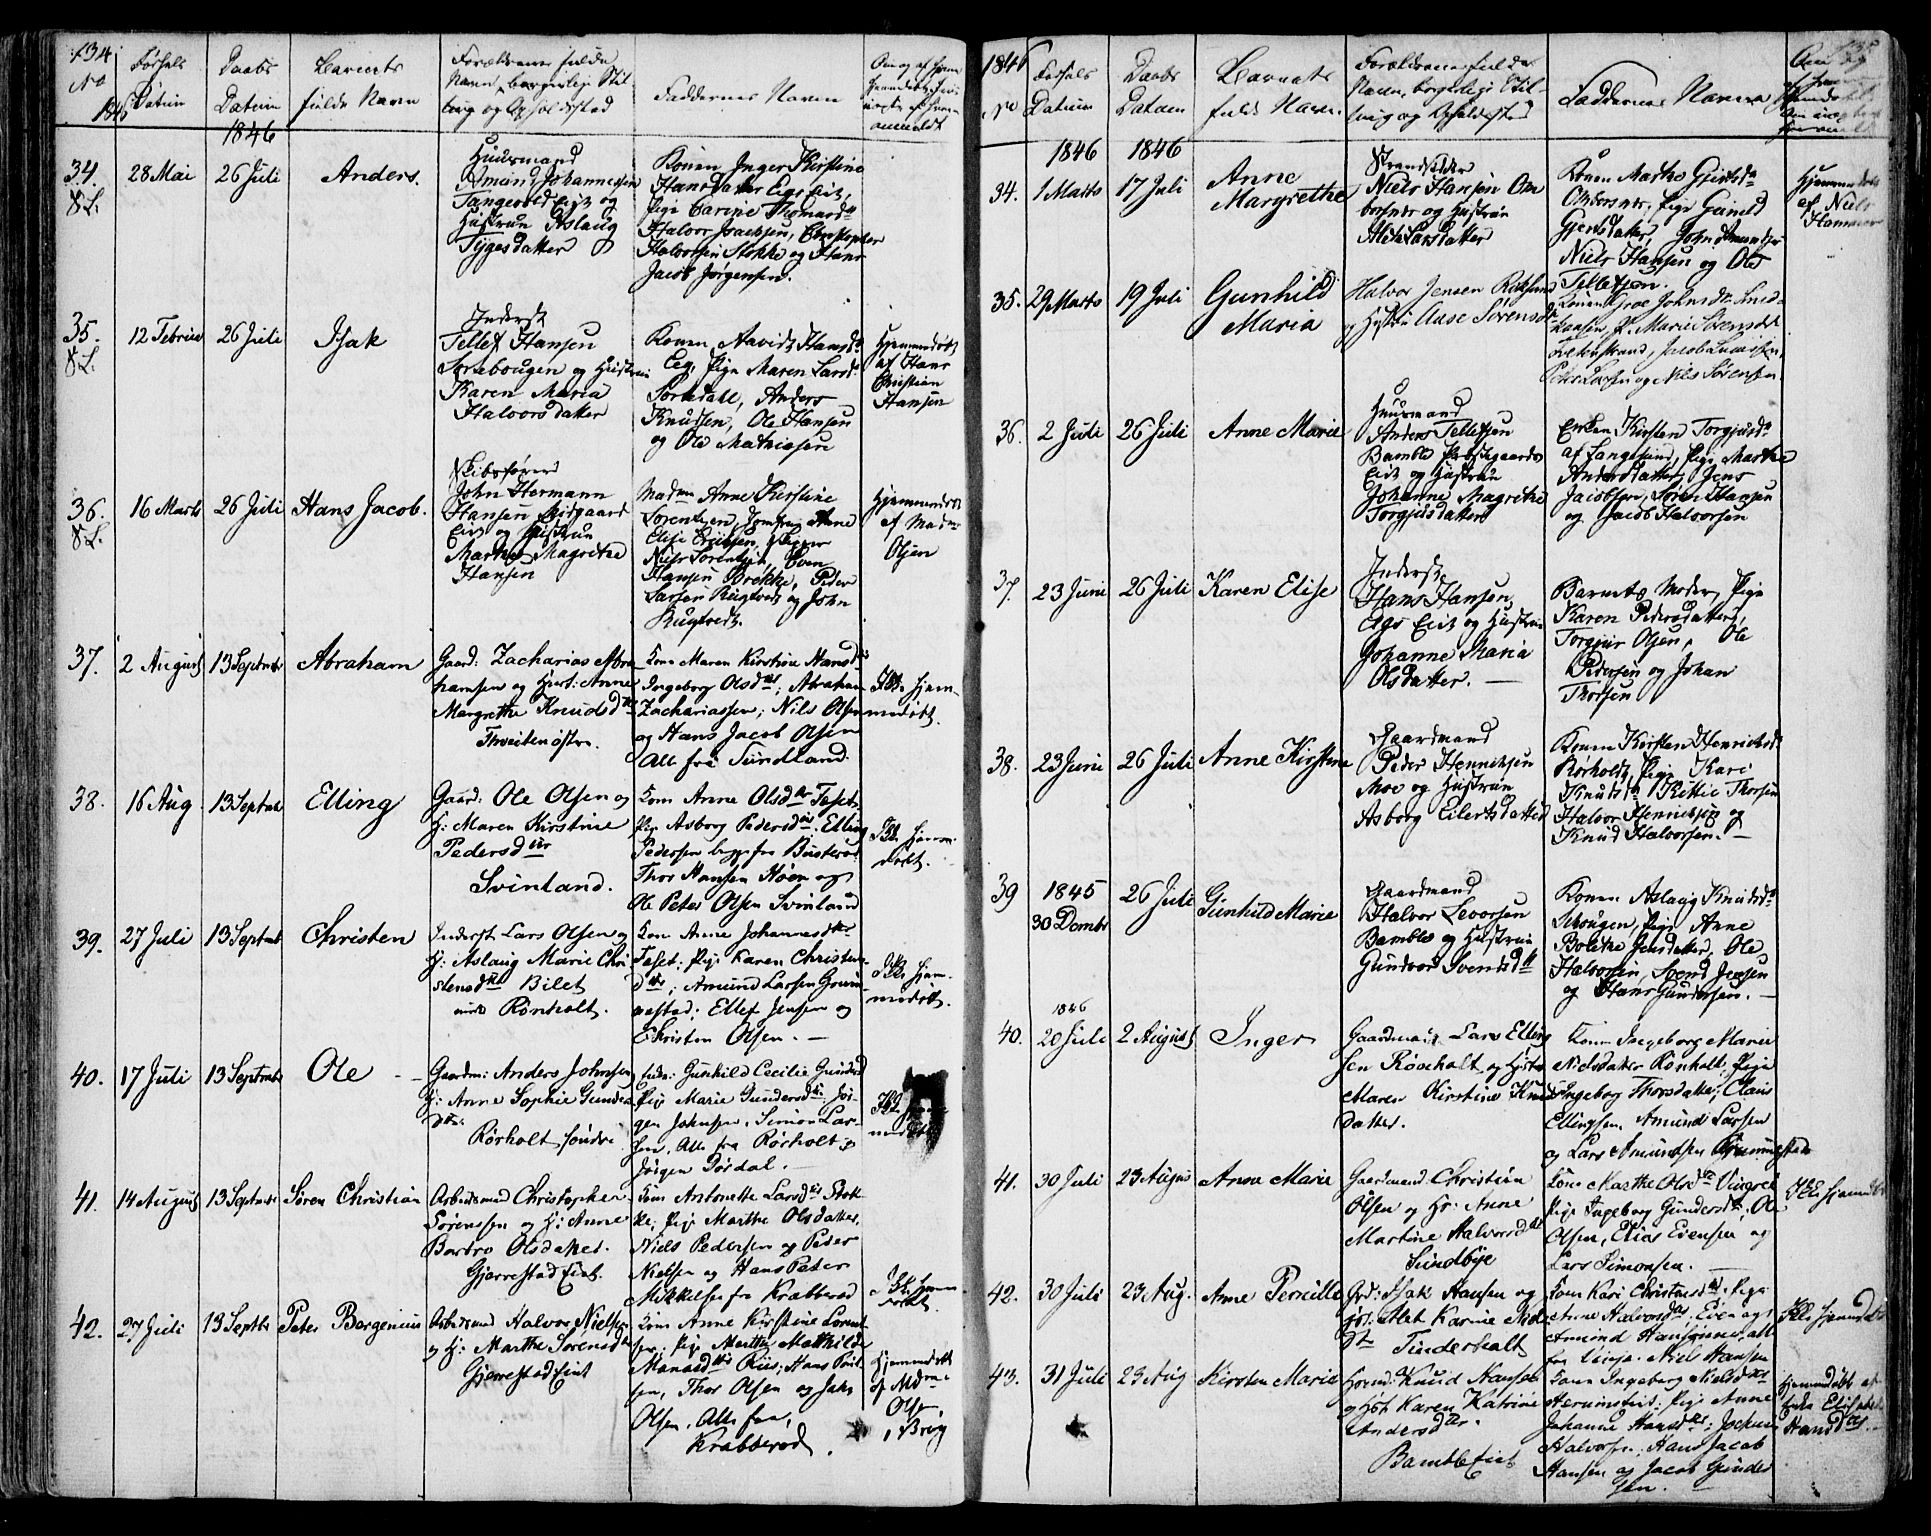 134
No
1846
Fødsels
Datum
Daabs
Datum
1846
Barnets
fulde Navn
Forældrenes fulde
Navn, borgerlige Stil-
ling og Opholdssted
Faddernes Navne
34.
28 Mai
26 Juli
Anders.
Huusmand
Amund Johannessen
Tangvald Eiet og
Hustrue Aslaug
Tygesdatter
Konen Inger Kirstine
Hansdatter
Pige Carine Thomasdr
Halvor Isaksen, Christopher
Halvorsen Stokke og Hans
Jacob Jørgensen.
35.
12 Februar
26 Juli
Isak
Inderst
Tellef Hansen
og Hustrue
Karen Maria
Halvorsdatter
Konen Hansdr
Eeg, Pige Maren Larsdr
Anders
Knudsen, Ole Hansen
og Ole Mathiasen
Hjemmedøbt
af Hans
Christian
Hansen
36.
16 Marts
26 Juli
Hans Jacob.
Skibsfører
John Hermann
Hansen
Eiet og Hustrue
Marthe Magrethe
Hansen
Madme Anne Kirstine
Lorentzen,
Elise
Niels Lorentzen, Even
Hansen Brekke, Peder
Larsen Rugtvedt og John
Rugtvedt.
Hjemmedøbt
af Madme
Olsen
37.
2 August
13 Septmbr
Abraham
Gaard: Zacharias Abra
hamsen og Hust: Anne
Margrethe Knudsdtr
Thveiten østre.
Kone Maren Kirstine Hansdtr
Ingeborg Olsdtr; Abraham
Zachariassen; Nils Olsen
og Hans Jacob Olsen
Alle fra Sundland.
Ikke hjem-
medøbt.
38.
16 Aug
13 Septmbr
Elling
Gaard: Ole Olsen og
H: Maren Kirstine
Pedersdtr
Svinland.
Kone Anne Olsdtr
Pige Asborg Pedersdtr; Elling
Pedersen begge fra
Thor Hansen Høen og
Ole Peter Olsen Svinland
Ikke hjemme
døbt.
39.
27 Juli
13 Septmbr
Christen
Inderst Lars Olsen og
H: Aslaug Marie Chri
stensdtr Bilet
under Rønholt.
Kone Anne Johannesdtr
Pige Karen Christens
dtr; Amund Larsen Grum
mestad; Ellef Jensen og
Christen Olsen. —
Ikke hjem-
medøbt.
40.
17 Juli
13 Septmbr
Ole
Gaardm: Anders Johnsen
H: Anne Sophie Gunders
dtr:
Rørholt søndre
Enke: Gunhild Cecilie
Pige Marie Gundersdtr; Jør
gen Johnsen, Simon Lar-
sen, Alle fra Rørholt og
Jørgen Dørdal. —
41.
14 August
13 Septmbr
Søren Christian
Arbeidsmd Christopher
Sørensen og H: Anne
Barbro Olsdatter.
Gjerrestad Eiet.
Kone Antonette Larsdtr Stok
ke; Pige Marthe Olsdatter,
Niels Pedersen og Peder
Nielsen og Hans Peter
Mikkelsen fra Krabberød
42.
27 Juli
13 Septbr
Peter Bergenius
Arbeidsmd Halvor Nielsen
og H: Marthe Sørensdtr
Gjerrestad Eiet
Kone Anne Kirstine Lorent
sen; Pige Marthe Mathilde
Hans
sen, Thor Olsen og Jahn
Olsen. Alle fra
Krabberød.
Hjemmedøbt
af Mdme
Olsen
i Brvig
1846
No
Fødsels
Datum
Daabs
Datum
Barnets
fulde Navn.
Forældrenes fulde
Navn, borgerlige Stil-
ling og Opholdssted
Faddernes Navne
1846
1846
34.
1 Marts
17 Juli
Anne
Margrethe
Strandsidder
Niels Hansen Om
borsnes og Hustrue
Aleta Larsdatter
Konen Marthe Gjertsdr
Omborsnes, Pige
Gjertsdatter, John Amundsen
Niels Hansen og Ole
Tellefsen.
Hjemmedøbt
af Niels
Hansen
35.
29 Marts
19 Juli
Gunhild
Maria
Halvor Jensen
og Hustru Aase Sørensdtr
Konen Groe Johnsdtr
P. Marie Sørensdtr
Jacob
Peter Larsen og Nils Sørensen.
36.
2 Juli
26 Juli
Anne Marie
Huusmand
Anders Tellefsen
Bamble Præstegaards
Eiet og Hustrue
Johanne Magrethe
Torgjusdatter
Enken Kirsten Torgjusdr
af Langesund, Pige Marthe
Andersdatter, Jens
Jacobsen, Søren Hansen
og Jacob Halvorsen
37.
23 Juni
26 Juli
Karen Elise
Inderst
Hans Hansen
Eiet og Hustrue
Johanne Maria
Olsdatter. —
Barnets Moder, Pige
Karen Pedersdatter,
Torgjus Olsen, Ole
Pedersen og Johan
Thorsen
38.
23 Juni
26 Juli
Anne Kirstine
Gaardmand
Peder Henriksen
Moe og Hustrue
Asborg Eilertsdatter
Konen Kirsten Henriksdr
Rørholt, Pige Kari
Knudsdr Kittil Thorsen
Halvor Henriksen og
Knud Halvorsen. —
39
1845
30 Dcmbr
26 Juli
Gunhild Marie
Gaardmand
Halvor Levorsen
Bamble og Hustrue
Gundvor Svendsdtr
Konen Aslaug Knudsdr
Skougen, Pige Anne
Bolette Jensdatter, Ole
Halvorsen, Svend Jensen
og Hans Gundersen. —
40.
1846
20 Juli
2 August
Inger
Gaardmand Lars Elling
sen Rønholt og Hustr
Maren Kirstine Knuds
datter.
Kone Ingeborg Marie
Nielsdatter Rønholt; Pige
Ingeborg Thorsdatter; Claus
Ellingsen, Amund Larsen
og Lars Amundsen Grummestad
41.
30 Juli
23 August
Anne Marie
Gaardmand Christian
Olsen og Hr: Anne
Martine Halvorsdtr
Sundbye
Kone Marthe Olsdtr
Pige Ingeborg Gundersdtr, Ole
Olsen, Elias Evensen og
Lars Simonsen. —
Ikke hjemmedøbt
42.
30 Juli
23 Aug.
Anne Pernille
Grd: Isak Hansen og
Alet Karine
dtr Tinderholt
Kone Kari Christensdtr, Pige
Anne Halvorsdtr; Even og
Amund Hansen
Niels Hansen
Ikke hjemmedøbt
43.
31 Juli
23 Aug
Kirsten Marie
Knud Hansen
og Hst Karen Katrine
Andersdtr.
Bamble Eiet
Kone Ingeborg Nielsdtr
Pige Anne
Johanne Hansdtr; Jochum
Halvorsen; Hans Jacob
Hansen og Jacob Gunder
sen. —
Hjemmedøbt af
Enke Elisabet
Hansdtr.